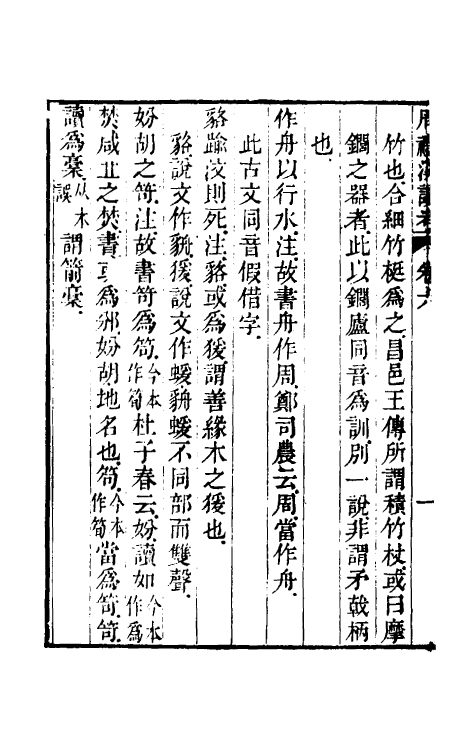 周禮漢讀考 卷六 一
竹也合細竹梃爲之昌邑王傳所謂積竹杖或曰摩
鐗之器者此以鐗廬同音爲訓別一說非謂矛戟柄
也
作舟以行水注故書舟作周鄭司農云周當作舟
此古文同音假借字
貉踰汶則死注貉或爲猨謂善緣木之猨也
貉說文作貈猨說文作蝯貈蝯不同部而雙聲
妢胡之笴注故書笴爲笱今本作筍杜子春云妢讀如今本作爲
焚咸丘之焚書或爲邠妢胡地名也笱今本作筍當爲笴笴
讀爲稾从木誤謂箭稾